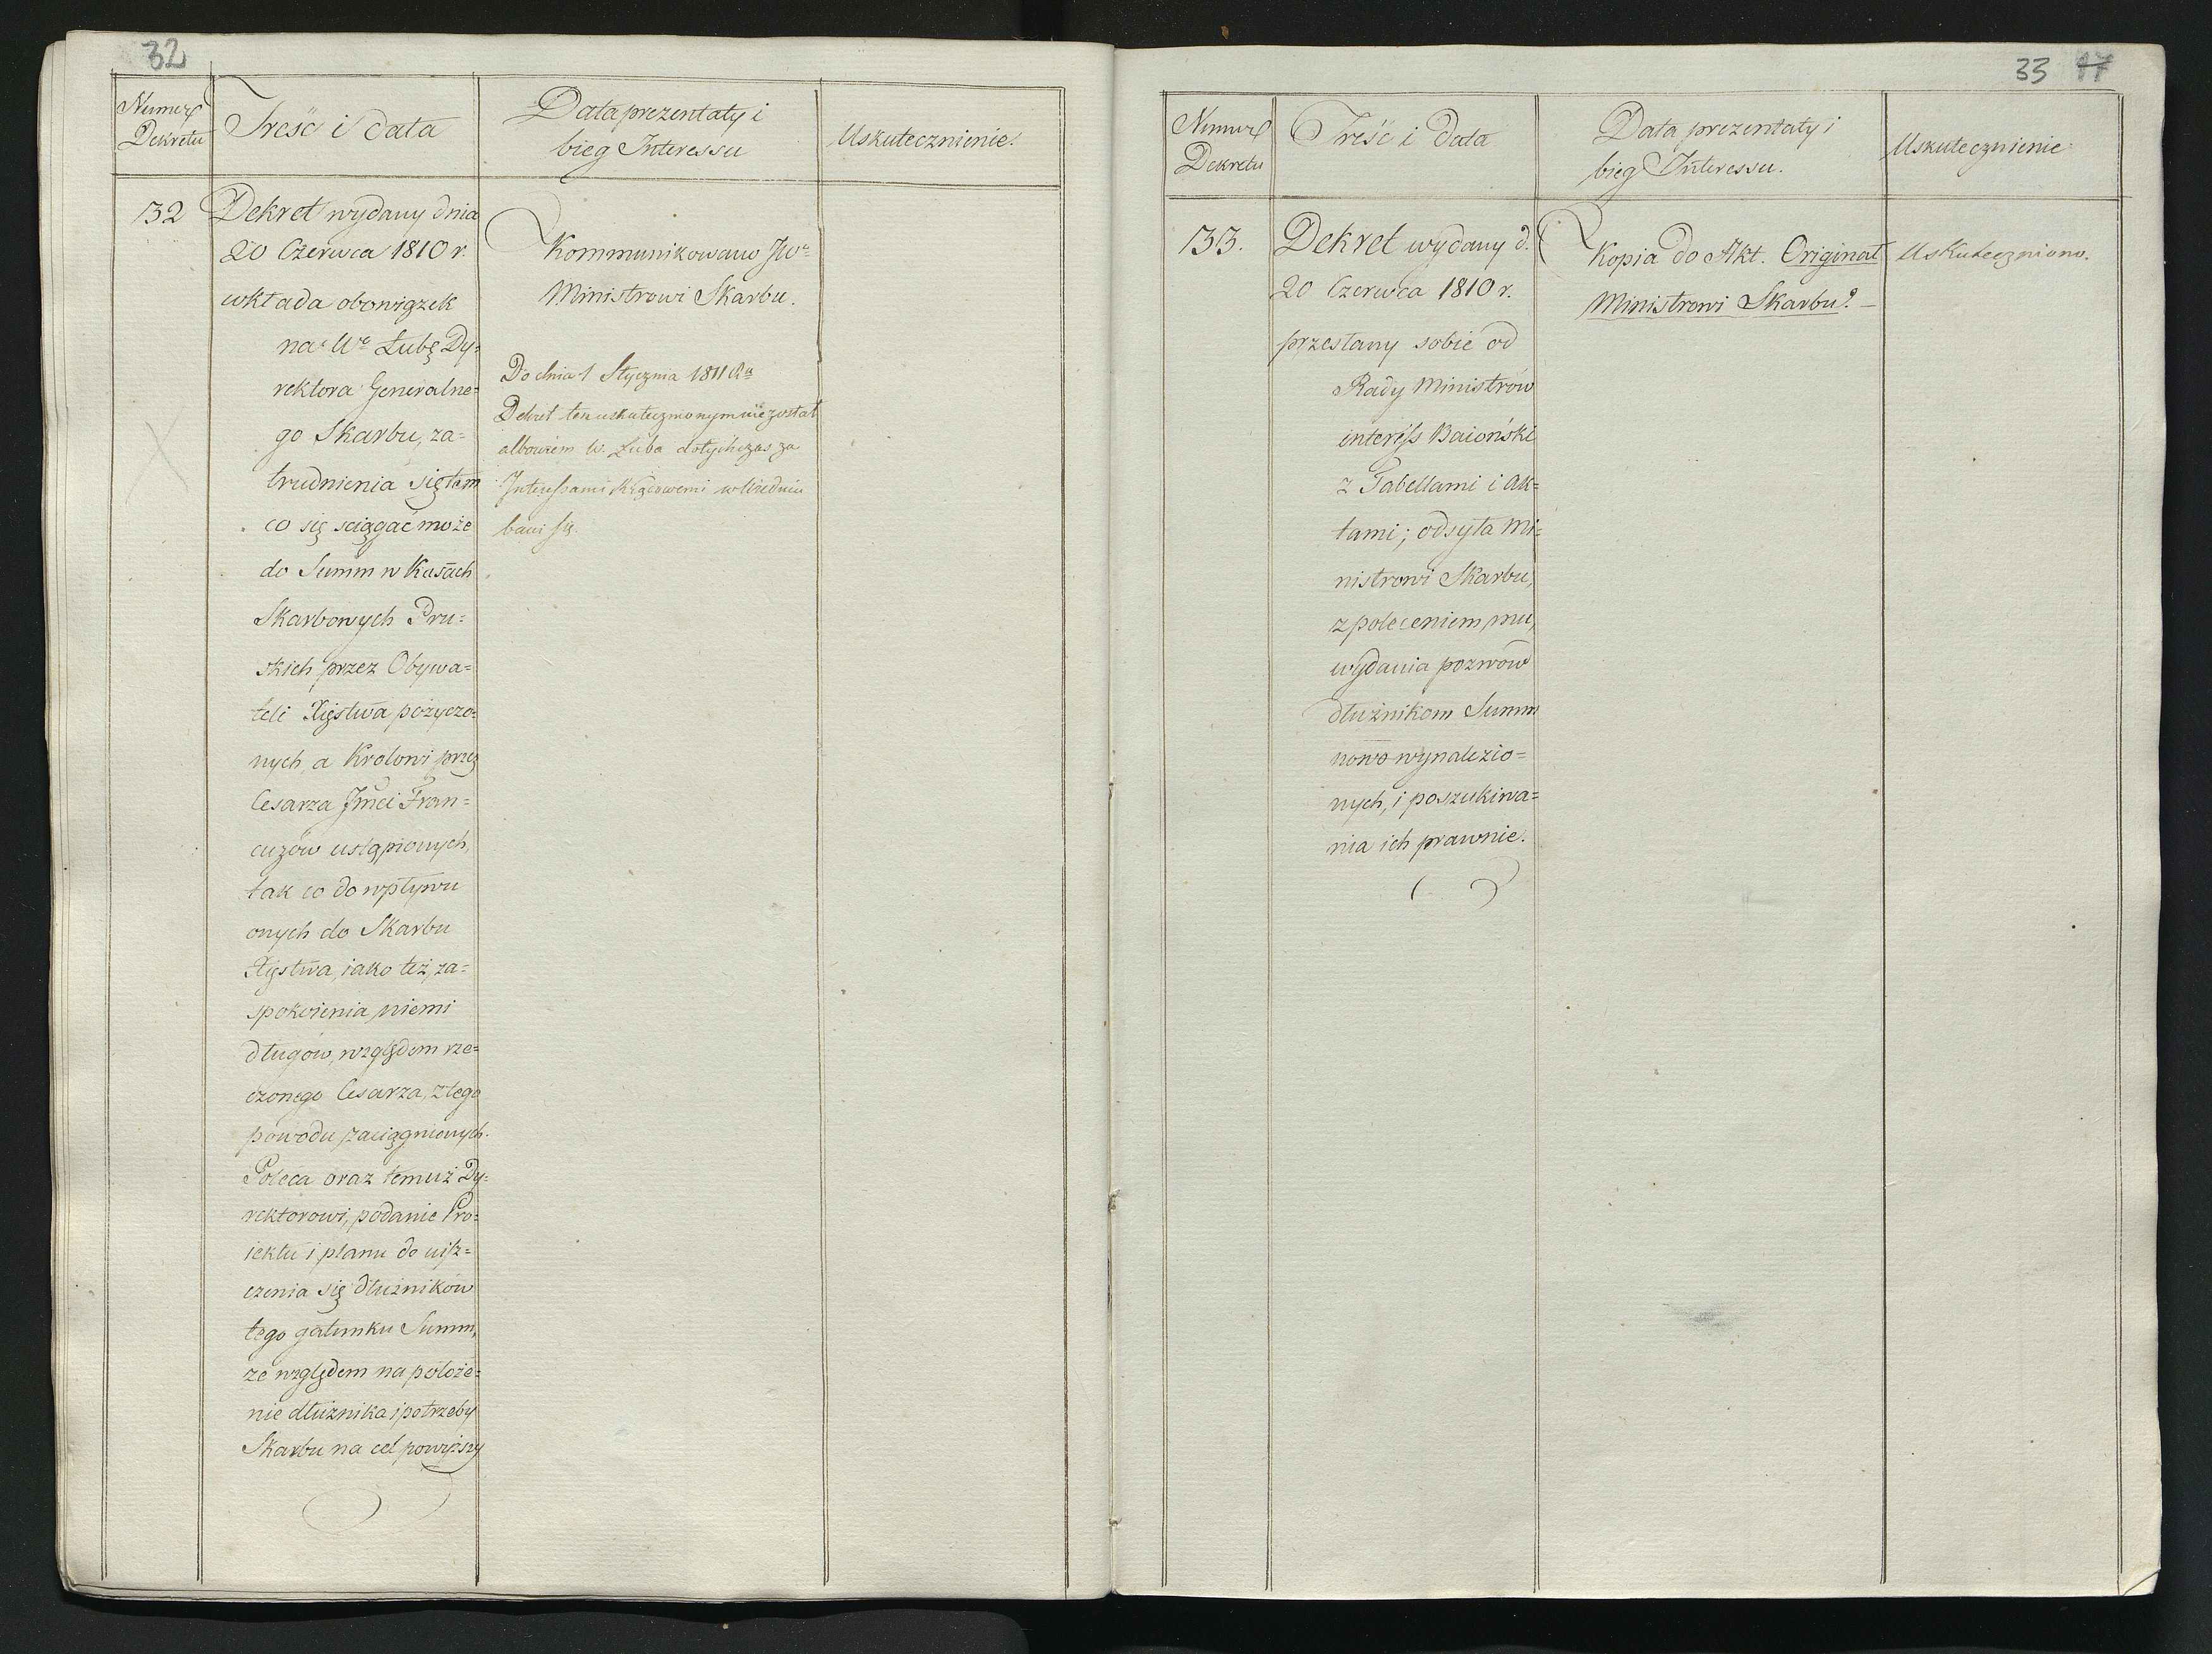 32
Numer
Dekretu
Treść i data
Data prezentaty i
bieg Interessu
Uskutecznienie.
132
Dekret wydany dnia
20 Czerwca 1810 r.
wkłada obowiązek
na We Łubę Dy=
rektora Generalne=
go Skarbu, za=
trudnienia się tem
co się sciągać może
do Summ w Kasach
Skarbowych Pru=
skich przez Obywa=
teli Xięstwa pożyczo=
nych, a Krolowi przez
Cesarza Jmci Fran=
cuzów ustąpionych,
tak co do wpływu
onych do Skarbu
Xięstwa, iako też, za=
spokoienia niemi
długow, względem rze=
czonego Cesarza, z tego
powodu zaciągnionych.
Poleca oraz temuż Dy=
rektorowi, podanie Pro=
iektu i planu do uisz=
czenia się dłużników
tego gatunku Summ,
ze względem na położe=
nie dłużnika i potrzeby
Skarbu na cel powyższy
Kommunikowano JWu
Ministrowi Skarbu.
Do dnia 1 Stycznia 1811 Ru
Dekret ten uskutecznionym nie został
albowiem W. Łuba dotychczas za
Interessami w Wiedniu
bawi się.
33 17
Numer
Dekretu
Treść i Data
Data prezentaty i
bieg Interessu.
Uskutecznienie
133.
Dekret wydany d.
20 Czerwca 1810 r.
przesłany sobie od
Rady Ministrów
interess Baioński
z Tabellami i Ak=
tami; odsyła Mi=
nistrowi Skarbu,
z poleceniem mu,
wydania pozwów
dłużnikom Summ
nowo wynalezio=
nych, i poszukiwa=
nia ich prawnie.
Kopia do Akt. Originał
Ministrowi Skarbu.
Uskuteczniono.